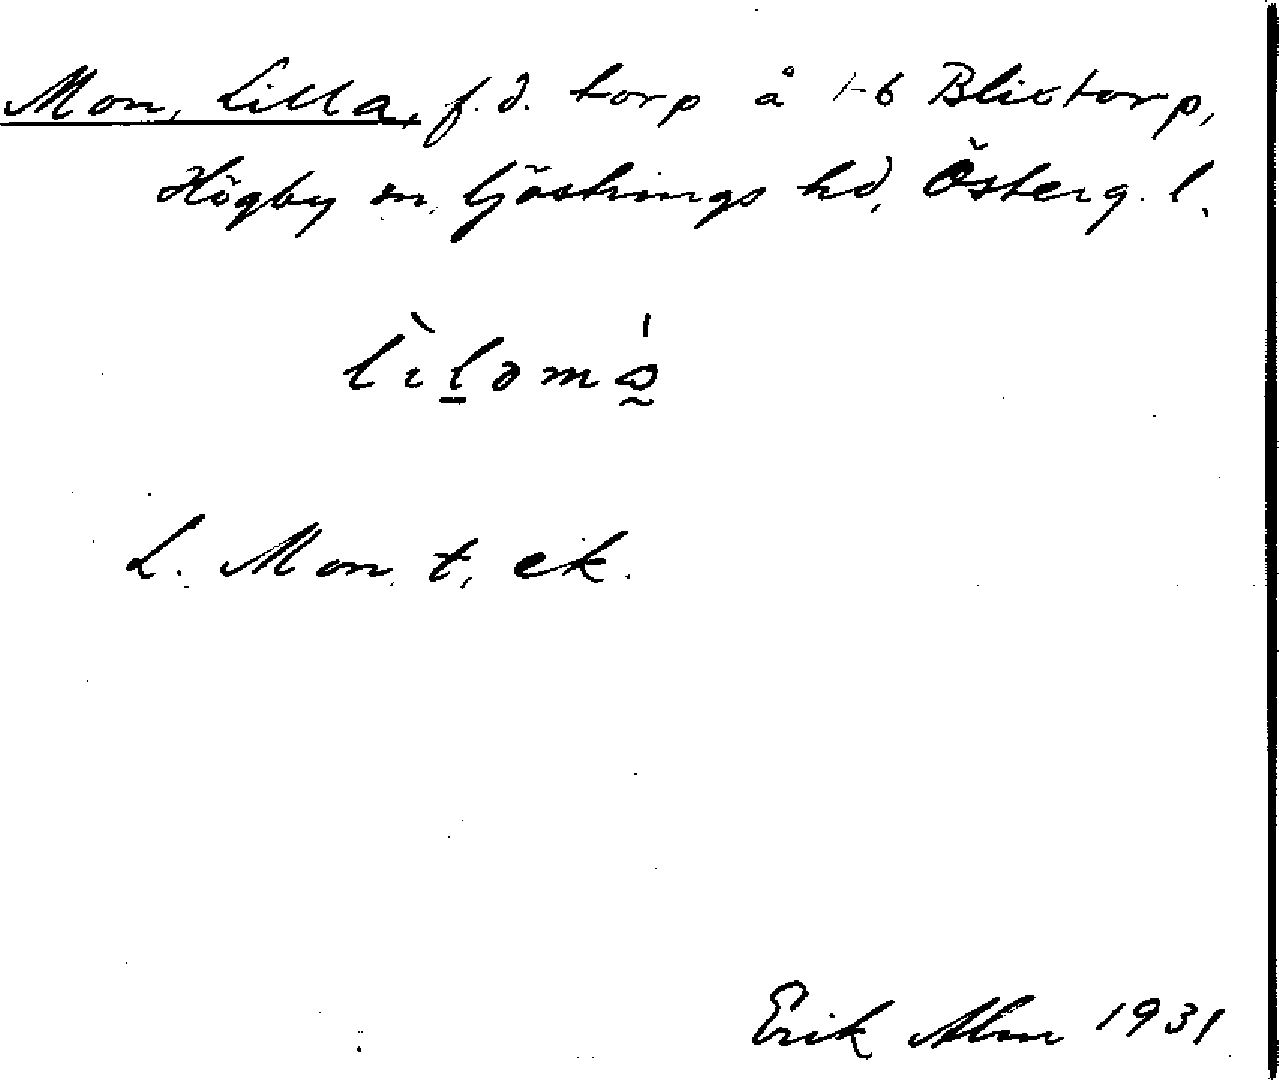 Mon, Lilla, f.d. torp å 1-6 Blixtorp,
Högby sn, Göstrings hd, Österg. l.
L. Mon t, ek.
Erik Alm 1931